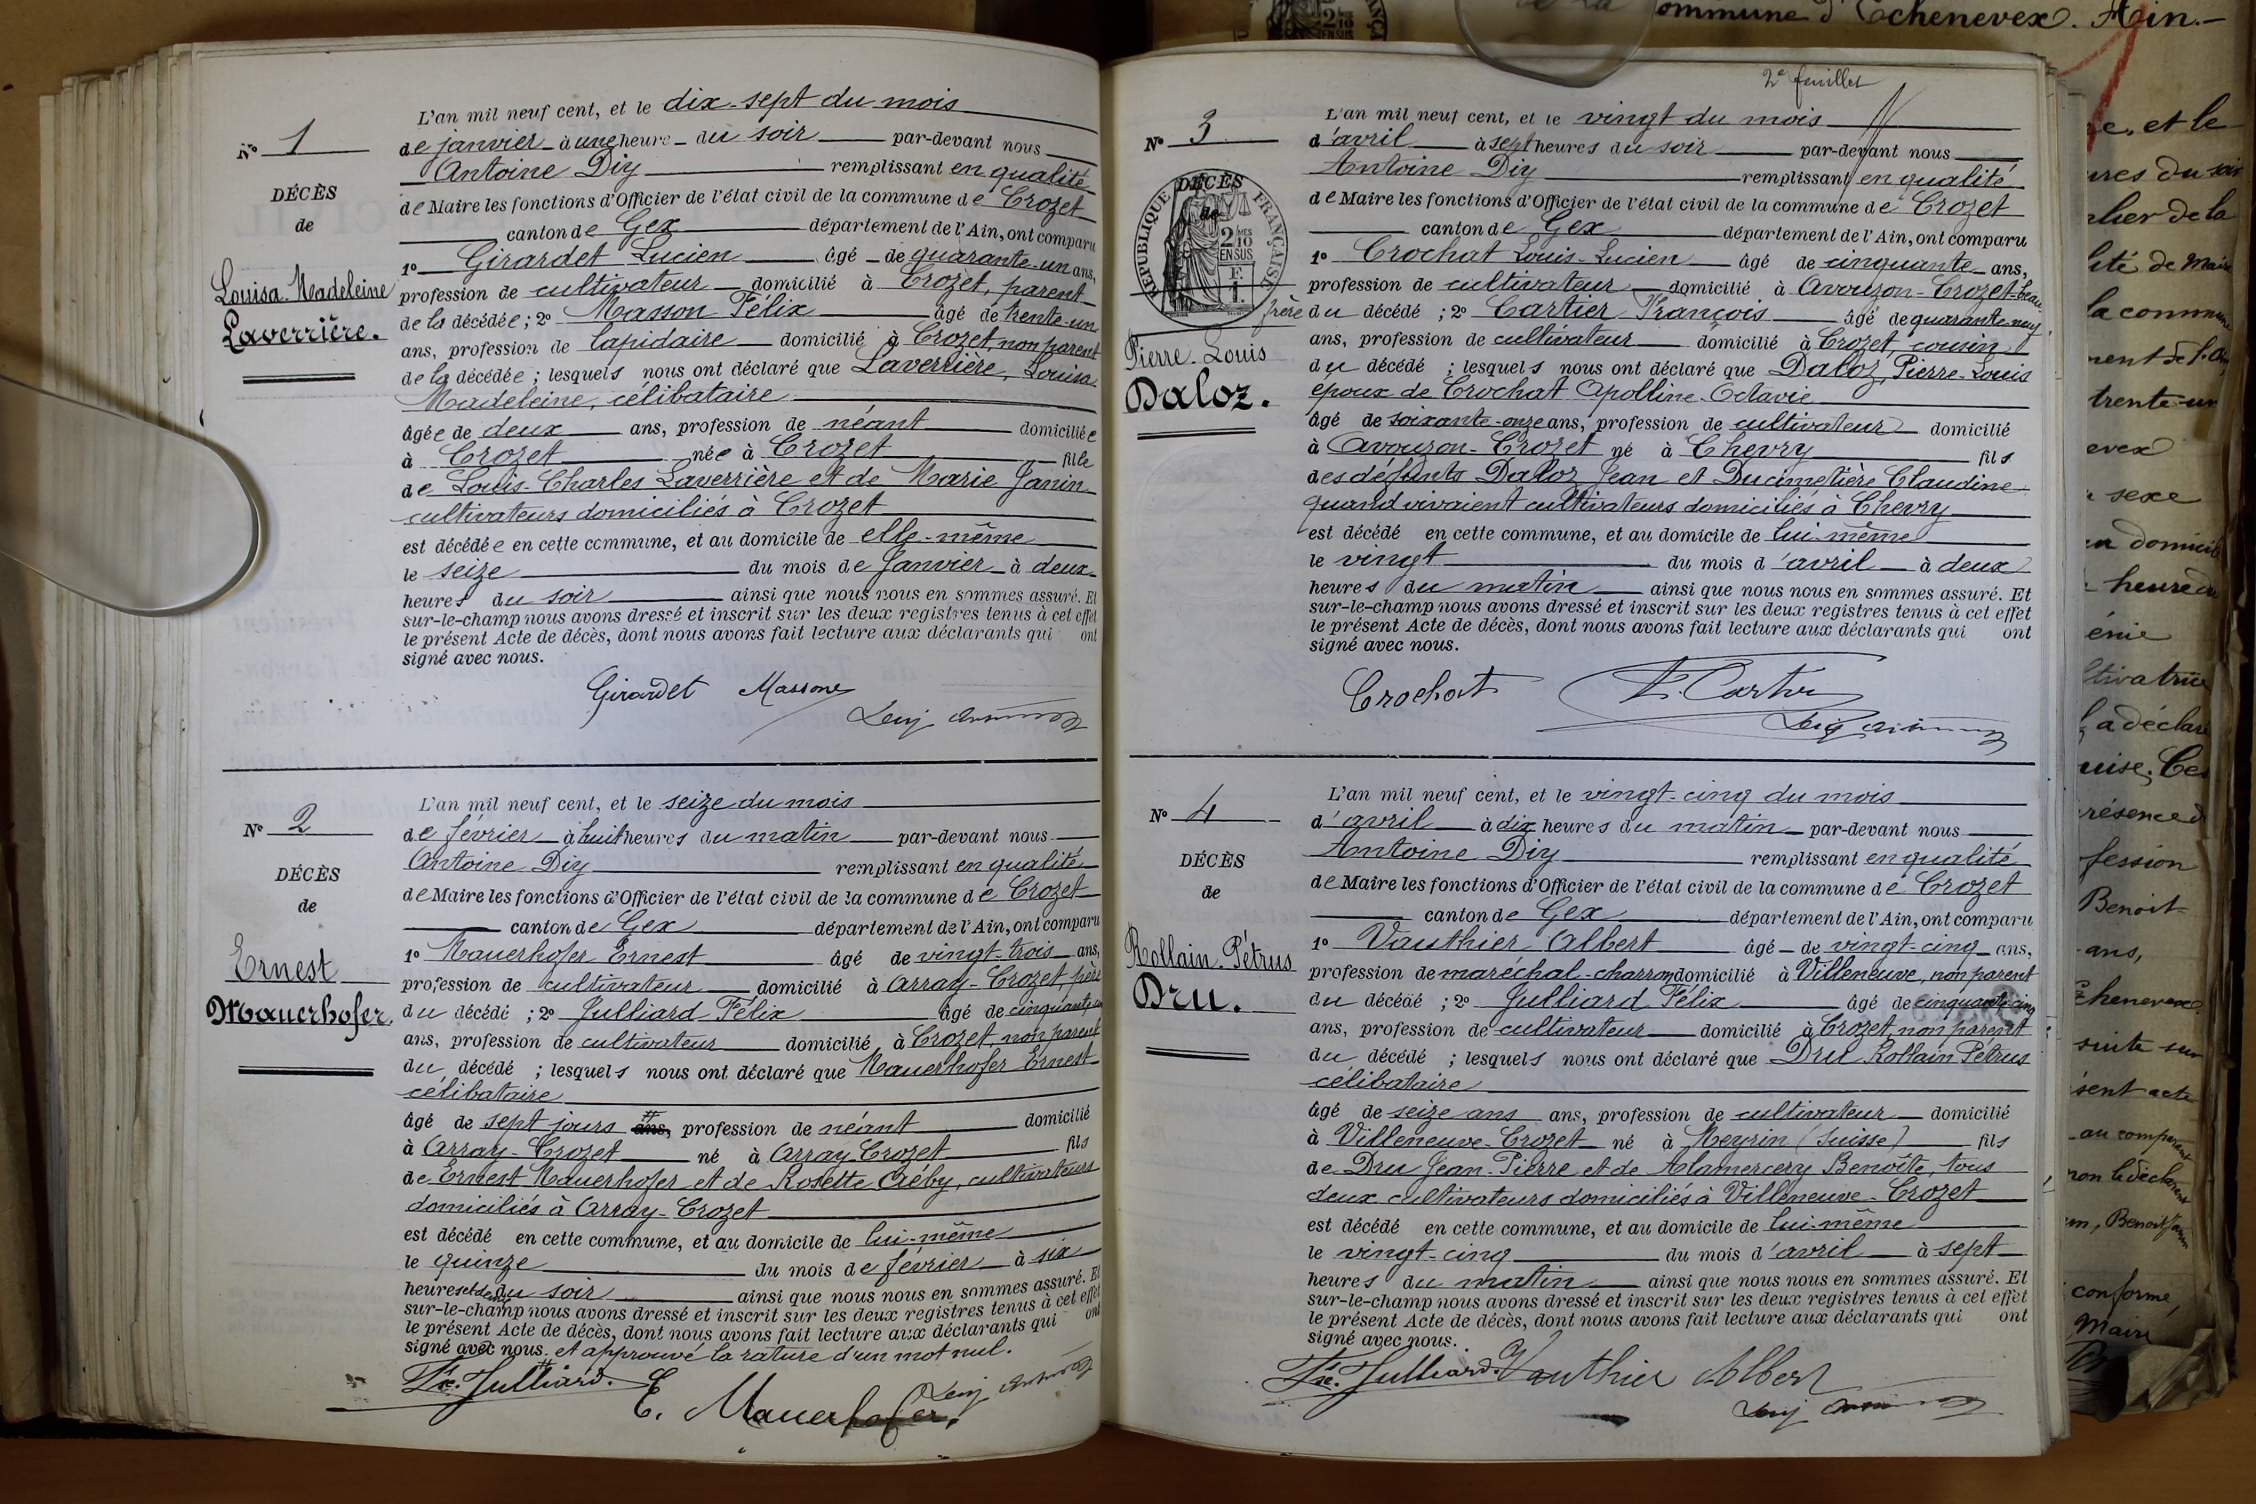 N° 1
DÉCÈS
de
Louisa-Madeleine
Laverrière.
L'an mil neuf cent, et le dix-sept du mois
de janvier à une heure du soir par-devant nous
Antoine Diy remplissant en qualité
de Maire les fonctions d'Officier de l'état civil de la commune de Crozet
canton de Gex département de l'Ain, ont comparu
1° Girardet Lucien âgé de quarante-un ans,
profession de cultivateur domicilié à Crozet, parent
de la décédée ; 2° Masson Félix âgé de trente-un
ans, profession de lapidaire domicilié à Crozet, non parent
de la décédée ; lesquels nous ont déclaré que Laverrière, Louisa
Madeleine, célibataire
âgée de deux ans, profession de néant domiciliée
à Crozet née à Crozet fille
de Louis-Charles Laverrière et de Marie Janin
cultivateurs domiciliés à Crozet
est décédée en cette commune, et au domicile de elle-même
le seize du mois de Janvier à deux
heures du soir ainsi que nous nous en sommes assuré. Et
sur-le-champ nous avons dressé et inscrit sur les deux registres tenus à cet effet
le présent Acte de décès, dont nous avons fait lecture aux déclarants qui ont
signé avec nous.
Girardet Massone
N° 2
DÉCÈS
de
Ernest
Mauerhofer.
L'an mil neuf cent, et le seize du mois
de février à huit heures du matin par-devant nous
Antoine Diy remplissant en qualité
de Maire les fonctions d'Officier de l'état civil de la commune de Crozet
canton de Gex département de l'Ain, ont comparu
1° Mauerhofer Ernest âgé de vingt-trois ans,
profession de cultivateur domicilié à Array-Crozet, père
du décédé ; 2° Julliard Félix âgé de cinquante-
ans, profession de cultivateur domicilié à Crozet, non parent
du décédé ; lesquels nous ont déclaré que Mauerhofer Ernest
célibataire
âgé de sept jours ans, profession de néant domicilié
à Array-Crozet né à Array-Crozet fils
de Ernest Mauerhofer et de Rosette Aéby, cultivateurs
domiciliés à Array-Crozet
est décédé en cette commune, et au domicile de lui-même
le quinze du mois de février à six
heures et demi du soir ainsi que nous nous en sommes assuré. Et
sur-le-champ nous avons dressé et inscrit sur les deux registres tenus à cet effet
le présent Acte de décès, dont nous avons fait lecture aux déclarants qui ont
signé avec nous. et approuvé la rature d'un mot nul.
Fx. Julliard.
E. Mauerhofer.
2e feuillet
N° 3
DÉCÈS
de
RÉPUBLIQUE FRANÇAISE
2/10 MES
EN SUS
Pierre-Louis
Daloz.
L'an mil neuf cent, et le vingt du mois
d'avril à sept heures du soir par-devant nous
Antoine Diy remplissant en qualité
de Maire les fonctions d'Officier de l'état civil de la commune de Crozet
canton de Gex département de l'Ain, ont comparu
1° Crochat Louis-Lucien âgé de cinquante ans,
profession de cultivateur domicilié à Avouzon-Crozet-beau
frère du décédé ; 2° Cartier François âgé de quarante-neuf
ans, profession de cultivateur domicilié à Crozet, cousin
du décédé ; lesquels nous ont déclaré que Daloz, Pierre-Louis
époux de Crochat Apolline-Octavie
âgé de soixante-onze ans, profession de cultivateur domicilié
à Avouzon-Crozet né à Chevry fils
des défunts Daloz Jean et Ducimetière Claudine
quand vivaient cultivateurs domiciliés à Chevry
est décédé en cette commune, et au domicile de lui-même
le vingt du mois d'avril à deux
heures du matin ainsi que nous nous en sommes assuré. Et
sur-le-champ nous avons dressé et inscrit sur les deux registres tenus à cet effet
le présent Acte de décès, dont nous avons fait lecture aux déclarants qui ont
signé avec nous.
Crochat
N° 4
DÉCÈS
de
Rollain-Pétrus
Dru.
L'an mil neuf cent, et le vingt-cinq du mois
d'avril à dix heures du matin par-devant nous
Antoine Diy remplissant en qualité
de Maire les fonctions d'Officier de l'état civil de la commune de Crozet
canton de Gex département de l'Ain, ont comparu
1° Vauthier Albert âgé de vingt-cinq ans,
profession de maréchal-charron domicilié à Villeneuve, non parent
du décédé ; 2° Julliard Félix âgé de cinquante-cinq
ans, profession de cultivateur domicilié à Crozet, non parent
du décédé ; lesquels nous ont déclaré que Dru Rollain Pétrus
célibataire
âgé de seize ans ans, profession de cultivateur domicilié
à Villeneuve-Crozet né à Meyrin (Suisse) fils
de Dru Jean-Pierre et de Alamercery Benoîte, tous
deux cultivateurs domiciliés à Villeneuve-Crozet
est décédé en cette commune, et au domicile de lui-même
le vingt-cinq du mois d'avril à sept
heures du matin ainsi que nous nous en sommes assuré. Et
sur-le-champ nous avons dressé et inscrit sur les deux registres tenus à cet effet
le présent Acte de décès, dont nous avons fait lecture aux déclarants qui ont
signé avec nous.
Fx. Julliard. Vauthier Albert
ommune d'Echenevex. Ain.
et le
du soir
de la
lité de Maire
la commune
trente-un
evex
sexe
domicile
heure du
énie
a déclaré
fession
Benoit
ans,
Echenevex
suite
acte
conforme,
Maire